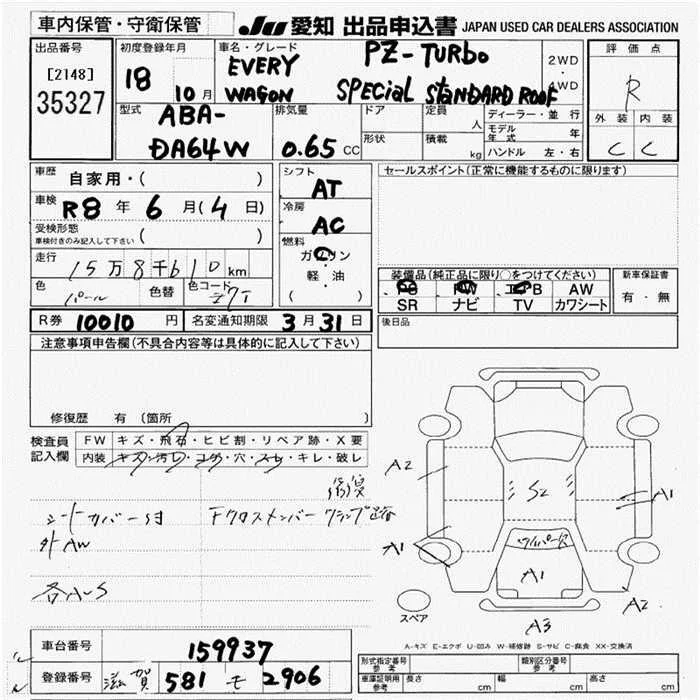 車内保管・守衛保管
JU 愛知 出品申込書 JAPAN USED CAR DEALERS ASSOCIATION
出品番号
[2148]
35327
初度登録年月
18
10 月
車名・グレード
EVERY
WAGON
PZ-TURBO
SPECIAL STANDARD ROOF
2WD
・
4WD
評価点
R
外装 内装
C C
型式
ABA-
DA64W
排気量
0.65 CC
ドア
形状
定員
人
積載
kg
ディーラー・並行
モデル年式 年
ハンドル 左・右
車歴
自家用・( )
車検
R8 年 6 月( 4 日)
受検形態
車検付きのみ記入して下さい ( )
走行
15万8千610km
色
パール
色替
色コード
Z7T
シフト
AT
冷房
AC
燃料
ガソリン
軽・油
( )
セールスポイント(正常に機能するものに限ります)
装備品(純正品に限り○をつけてください)
PS PW エアB AW
SR ナビ TV カワシート
新車保証書
有・無
後日品
R券 10010 円 名変通知期限 3月31日
注意事項申告欄(不具合内容等は具体的に記入して下さい)
修復歴 有 (箇所 )
検査員
記入欄
FW キズ・飛石・ヒビ割・リペア跡・X要
内装 キズ・汚レ・コゲ・穴・スレ・キレ・破レ
シートカバー付
外AW
各A〜S
Fクロスメンバー クランプ跡
A2
A1
S2
A1
ワイパーキズ
A1
A2
A3
スペア
A-キズ E-エクボ U-凹み W-補修跡 S-サビ C-腐食 XX-交換済
車台番号 159937
登録番号 滋賀 581 モ 2906
型式指定番号
参考
類別区分番号
参考
車庫証明用
参考
長さ cm
幅 cm
高さ cm